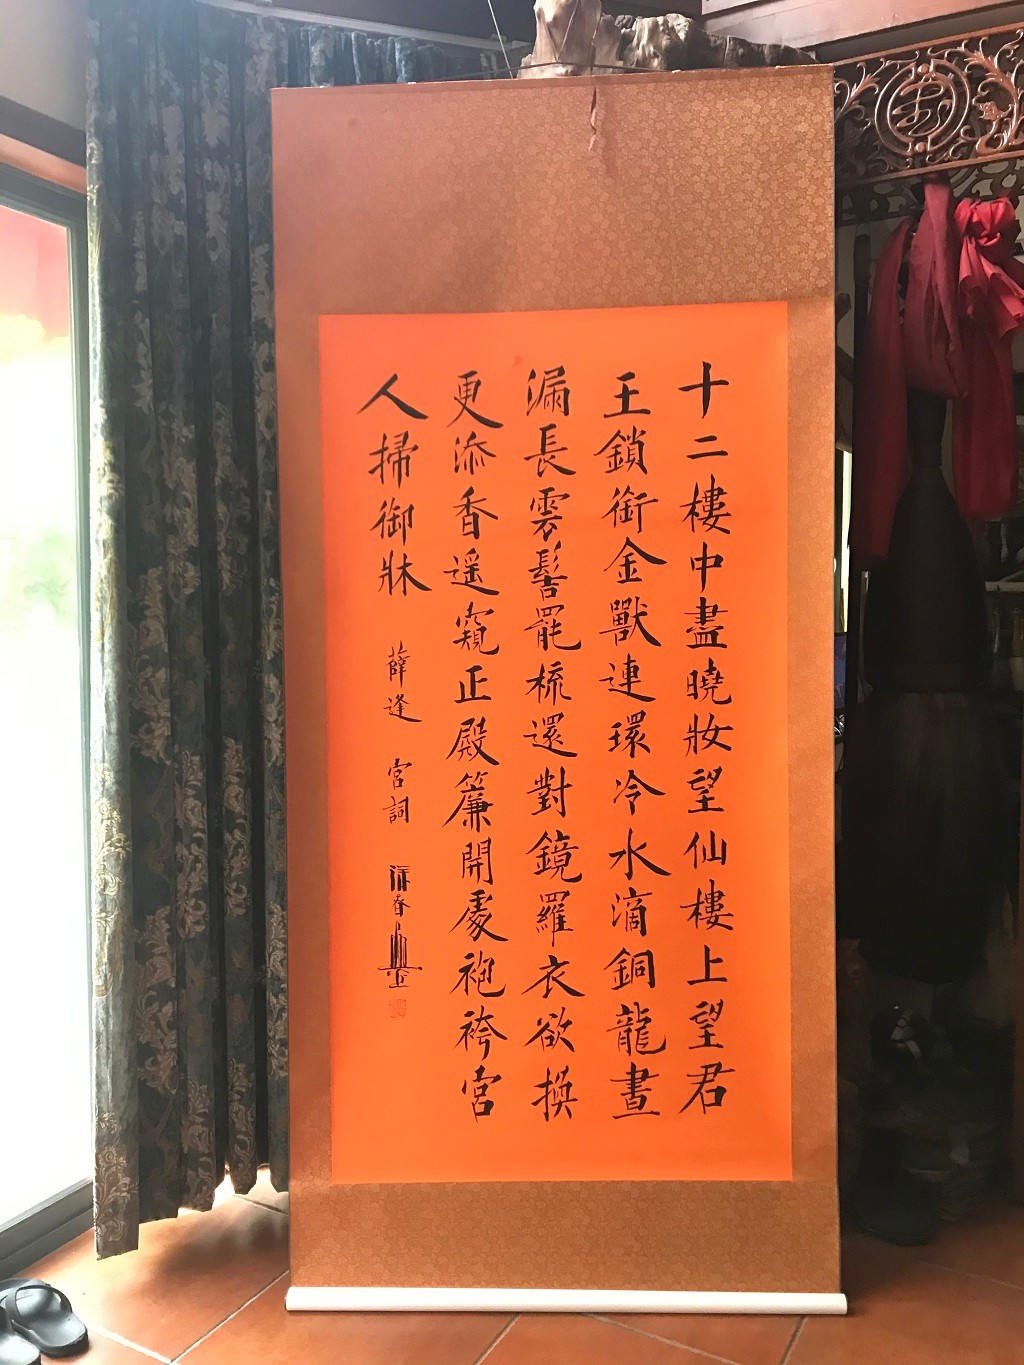 十二樓中盡曉妝望仙樓上望君
王鎖銜金獸連環冷水滴銅龍晝
漏長雲髻罷梳還對鏡羅衣欲換
更添香遥窺正殿簾開處袍袴宮
人掃御牀 薛逢 宮詞